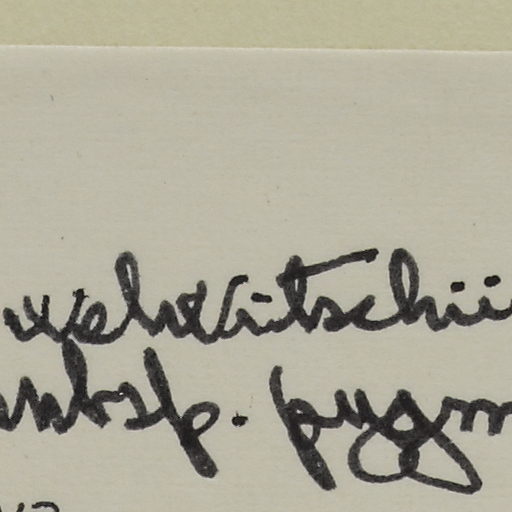 welwitschii
subsp. pygm